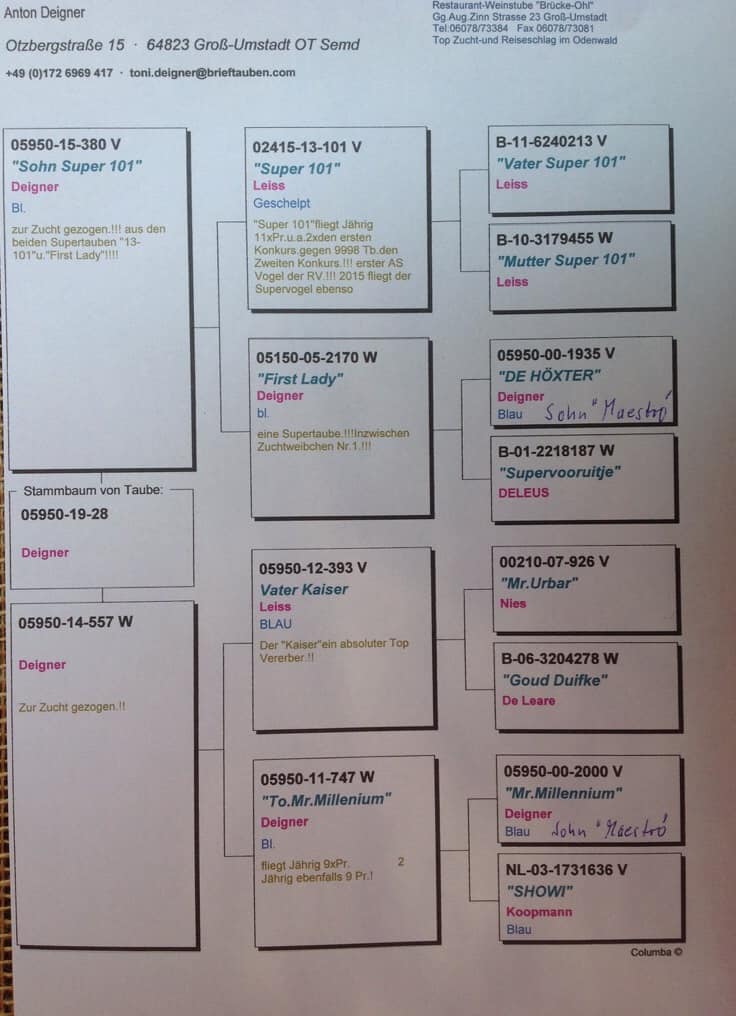 Anton Deigner
Otzbergstraße 15 · 64823 Groß-Umstadt OT Semd
+49 (0)172 6969 417 · toni.deigner@brieftauben.com
Restaurant-Weinstube "Brücke-Ohl"
Gg.Aug.Zinn Strasse 23 Groß-Umstadt
Tel:06078/73384 Fax 06078/73081
Top Zucht-und Reiseschlag im Odenwald
05950-15-380 V
"Sohn Super 101"
Deigner
Bl.
zur Zucht gezogen.!!! aus den
beiden Supertauben "13-
101"u."First Lady"!!!!
Stammbaum von Taube:
05950-19-28
Deigner
05950-14-557 W
Deigner
Zur Zucht gezogen.!!
02415-13-101 V
"Super 101"
Leiss
Geschelpt
"Super 101"fliegt Jährig
11xPr.u.a.2xden ersten
Konkurs.gegen 9998 Tb.den
Zweiten Konkurs.!!! erster AS
Vogel der RV.!!! 2015 fliegt der
Supervogel ebenso
05150-05-2170 W
"First Lady"
Deigner
bl.
eine Supertaube.!!!Inzwischen
Zuchtweibchen Nr.1.!!!
05950-12-393 V
Vater Kaiser
Leiss
BLAU
Der "Kaiser"ein absoluter Top
Vererber.!!
05950-11-747 W
"To.Mr.Millenium"
Deigner
Bl.
fliegt Jährig 9xPr. 2
Jährig ebenfalls 9 Pr.!
B-11-6240213 V
"Vater Super 101"
Leiss
B-10-3179455 W
"Mutter Super 101"
Leiss
05950-00-1935 V
"DE HÖXTER"
Deigner
Blau Sohn "Maestro
B-01-2218187 W
"Supervooruitje"
DELEUS
00210-07-926 V
"Mr.Urbar"
Nies
B-06-3204278 W
"Goud Duifke"
De Leare
05950-00-2000 V
"Mr.Millennium"
Deigner
Blau Sohn "Maestro
NL-03-1731636 V
"SHOWI"
Koopmann
Blau
Columba ©